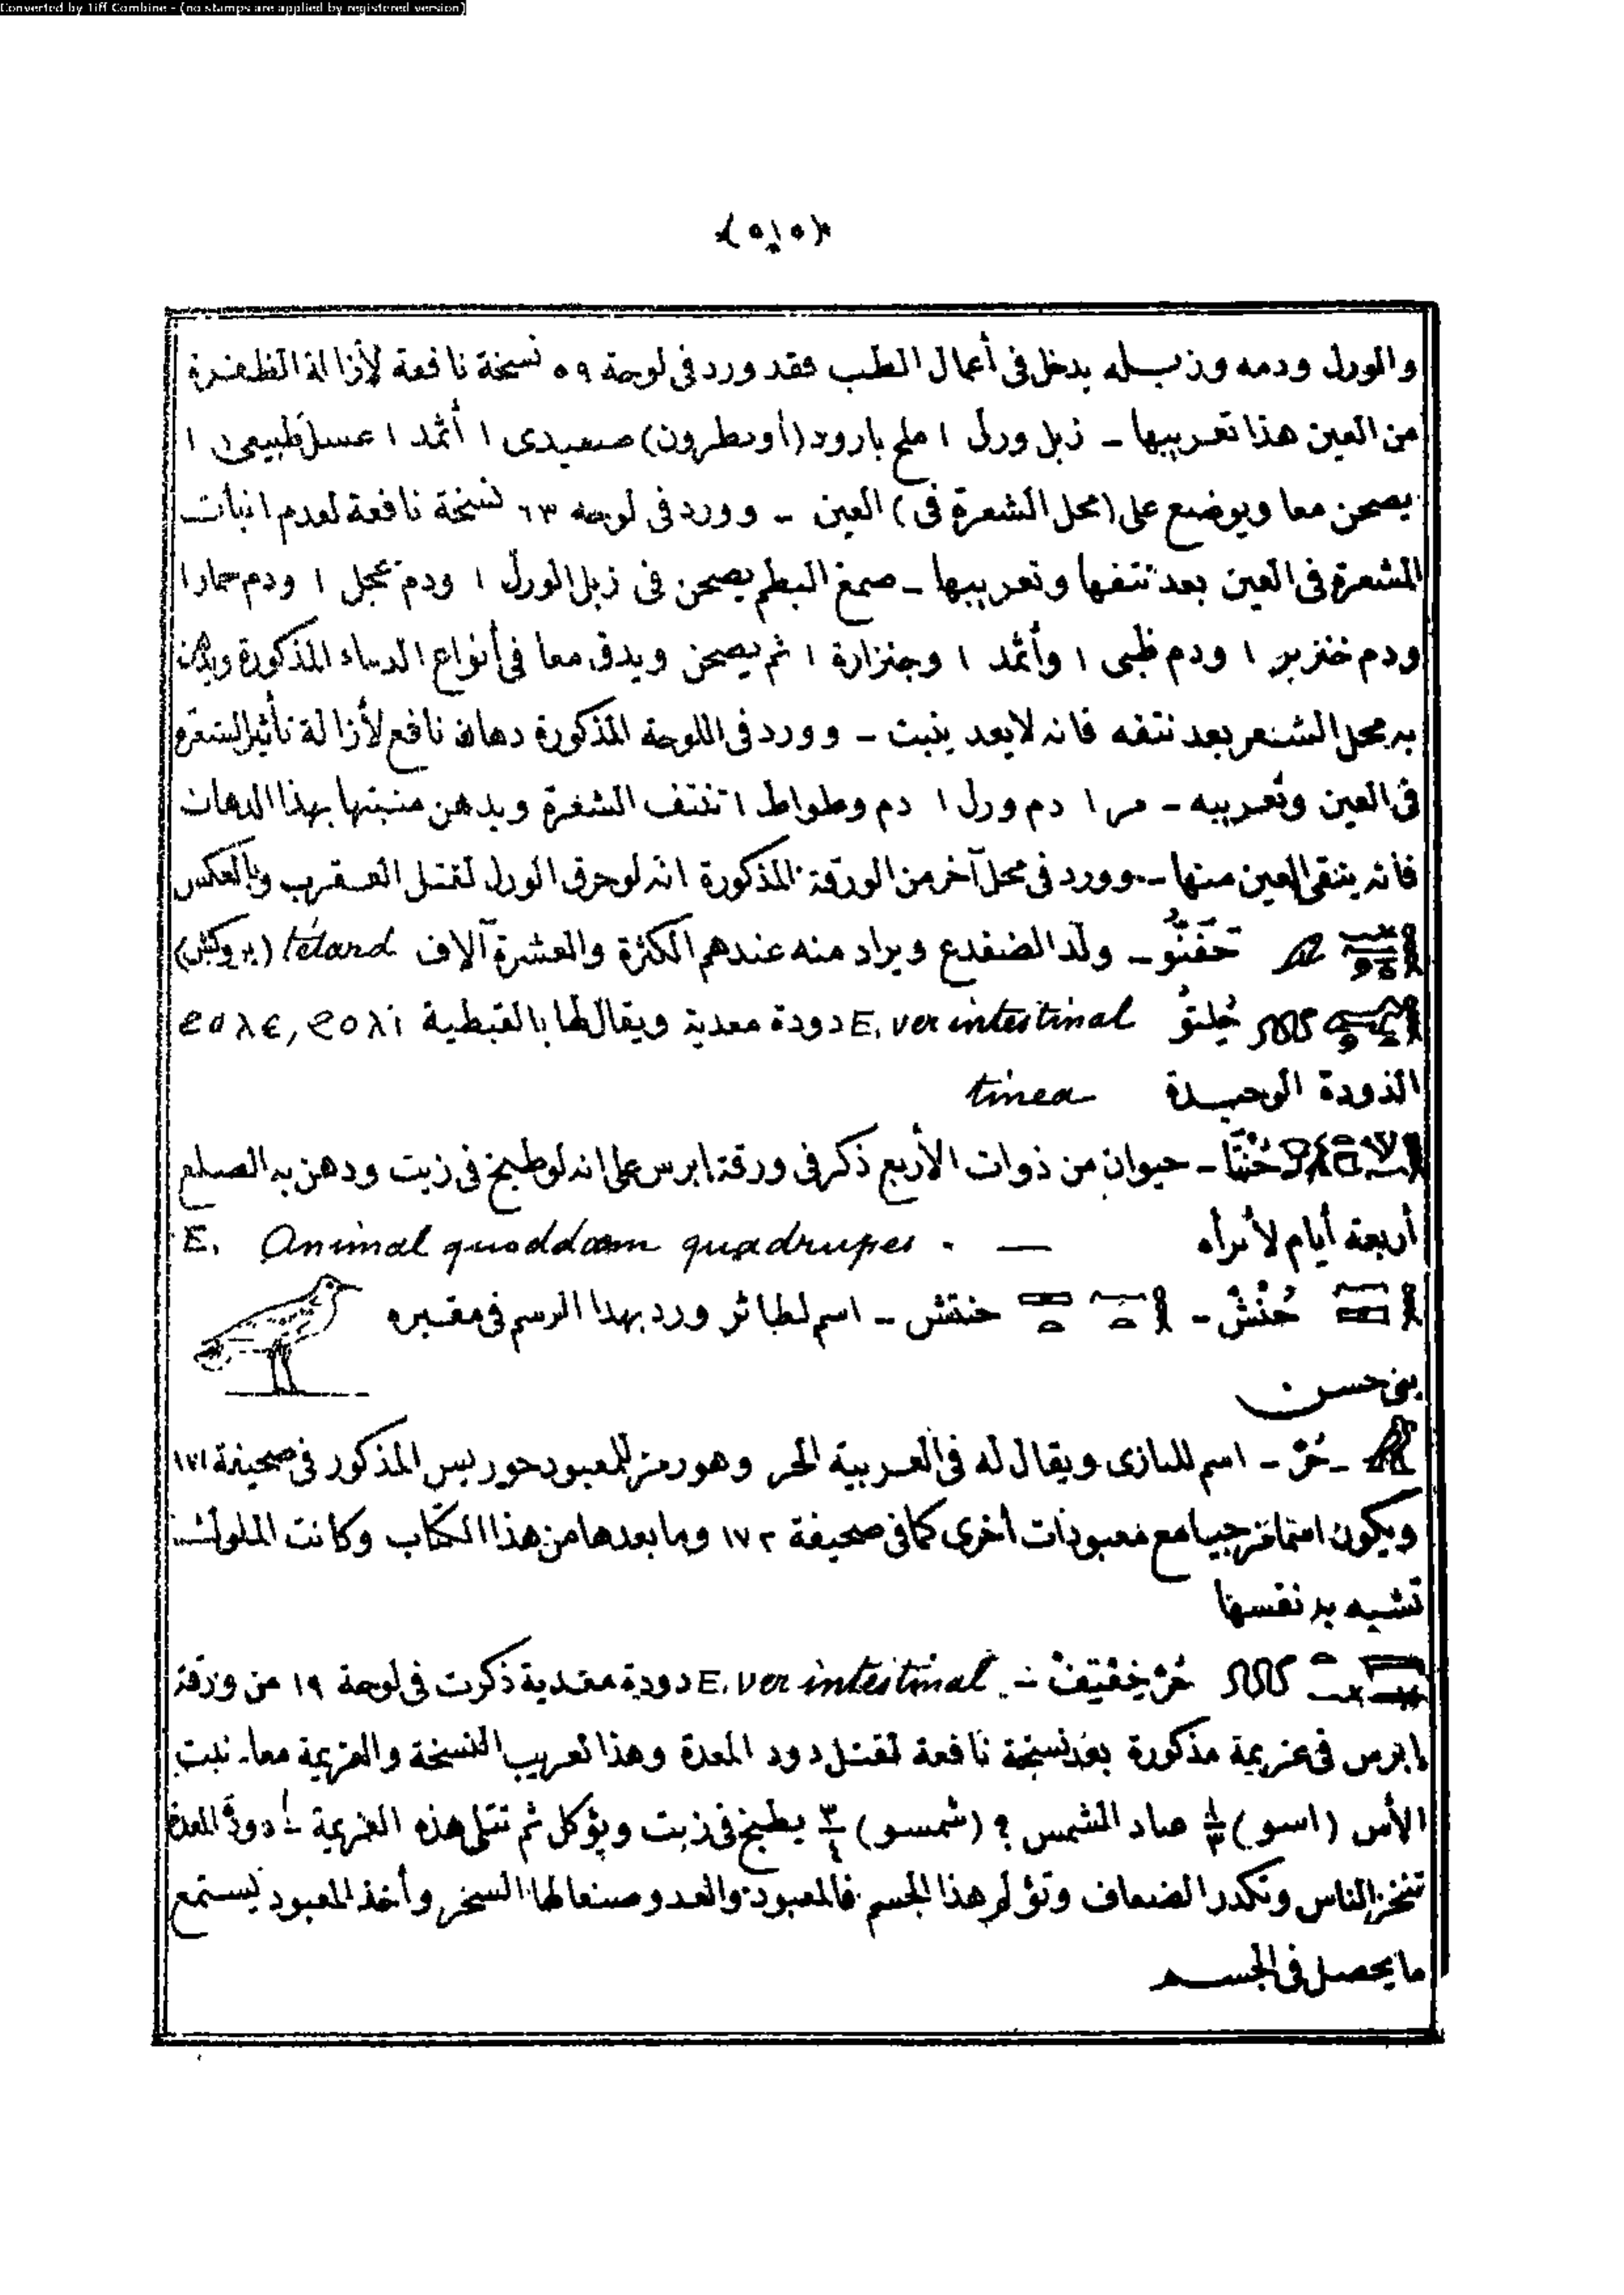 Converted by Tiff Combine - (no stamps are applied by registered version)
(٥١٥)
والورل ودمه وزبله يدخل فى أعمال الطب فقد ورد فى لوحة ٥٩ نسخة نافعة لأزالة الظفرة
من العين هذا تعريبها - زبل ورل ١ ملح بارود (أو نطرون) صعيدى ١ أثمد ١ عسل طبيعى ١
يصحن معا ويوضع على (محل الشعرة فى) العين - وورد فى لوحه ٦٣ نسخة نافعة لعدم انبات
الشعرة فى العين بعد نتفها وتعريبها - صمغ البطم يصحن فى زبل الورل ١ ودم عجل ١ ودم حمار ١
ودم خنزير ١ ودم ظبى ١ وأثمد ١ وجنزارة ١ ثم يصحن ويدق معا فى أنواع الدماء المذكورة ويدهن
به محل الشعر بعد نتفه فانه لا يعد ينبت - وورد فى اللوحة المذكورة دهان نافع لأزالة تأثير الشعرة
فى العين وتعريبه - مر ١ دم ورل ١ دم وطواط ١ تنتف الشعرة ويدهن منبتها بهذا الدهان
فانه ينقى العين منها - وورد فى محل آخر من الورقة المذكورة انه لو حرق الورل لقتل العقرب وبالعكس
حَفَنُّو - ولد الضفدع ويراد منه عندهم الكثرة والعشرة آلاف têtard (بروكش)
حُلتوُ E. ver intestinal دودة معدية ويقال لها بالقبطية ϩⲟⲗⲓ ,ϩⲟⲗⲉ
الدودة الوحيدة tinea
حُنْتَا - حيوان من ذوات الأربع ذكر فى ورقة ابرس على انه لو طبخ فى زيت ودهن به الصلع
أربعة أيام لأبرأه — E. Animal quoddam quadrupes .
حُنْشْ - خنتش - اسم لطائر ورد بهذا الرسم فى مقبره
بنى حسن
حُرْ - اسم للبازى ويقال له فى العربية الحر وهو رمز للمعبود حوريس المذكور فى صحيفة ١٧١
ويكون اسما مزجيا مع معبودات أخرى كما فى صحيفة ١٧٢ وما بعدها من هذا الكتاب وكانت الملوك
تشبه به نفسها
حُرْ خِفْتِفْ - E. ver intestinal دودة معدية ذكرت فى لوحة ١٩ من ورقة
إبرس فى عزيمة مذكورة بعد نسخة نافعة لقتل دود المعدة وهذا تعريب النسخة والعزيمة معا. نبت
الأس (اسو) صاد الشمس ؟ (شمسو) ٣/٤ يطبخ فى زيت ويؤكل ثم تتلى هذه العزيمة - دودة المعدة
تنخز الناس وتكدر الضعاف وتؤلم هذا الجسم فالمعبود والعدو صنعا لها السحر وأخذ المعبود يستمع
ما يحصل فى الجسم